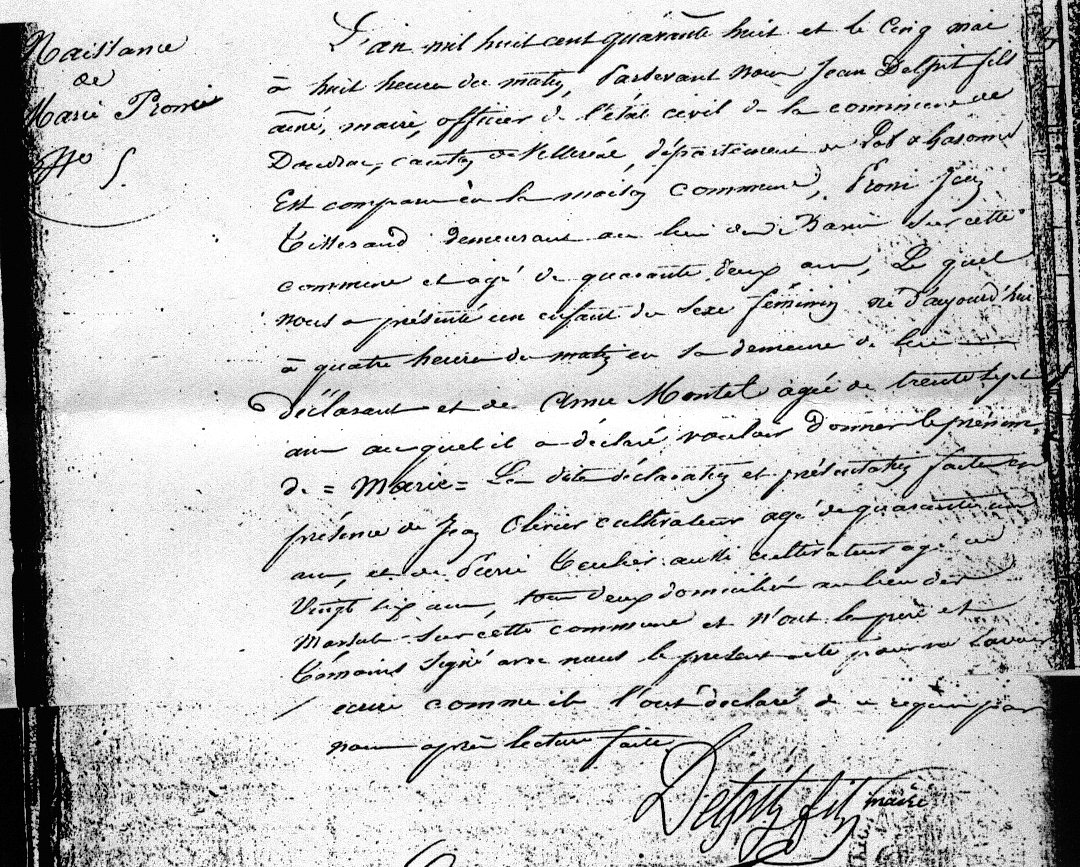 Naissance
de
Marie Froni
N° 5
L'an mil huit cent quarante huit et le cinq mai
à huit heure du matin, Pardevant nous Jean Delpit fils
ainé, maire, officier de l'état civil de la commune de
canton de Villereal, département de Lot & Garonne
Est comparu en la maison commune, Froni Jean
tisserand demeurant au lieu de sur cette
commune et agé de quarante deux ans, Le quel
nous a présenté un enfant du sexe féminin né d'aujourd'hui
à quatre heure du matin en sa demeure de lui
déclarant et de Anne Montel agée de trente sept
ans auquel il a déclaré vouloir donner le prénom
de = Marie = La dite déclaration et présentation faite en
présence de Jean cultivateur agé de quarante un
ans, et de Pierre Teulier aussi cultivateur agé de
vingt six ans, tous deux domiciliés au lieu de
sur cette commune et n'ont le père et
témoins signé avec nous le présent acte pour ne savoir
écrire comme ils l'ont déclaré de ce requis par
nous après lecture faite
Delpit fils maire